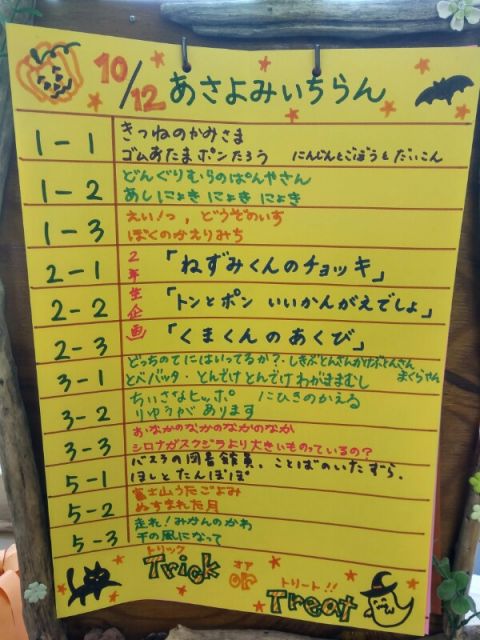 10/12 あさよみいちらん
1-1 きつねのかみさま
ゴムあたまポンたろう にんじんとごぼうとだいこん
1-2 どんぐりむらのぱんやさん
あしにょきにょきにょき
1-3 えい!っ, どうぞのいす
ぼくのかえりみち
2年生企画
2-1 「ねずみくんのチョッキ」
2-2 「トンとポン いいかんがえでしょ」
2-3 「くまくんのあくび」
3-1 どっちのてにはいってるか?・しきぶとんさんかけぶとんさん
まくらさん
とべバッタ・とんでけとんでけわがままむし
3-2 ちいさなヒッポ にひきのかえる
りゆうがあります
3-3 おなかのなかのなかのなか
シロナガスクジラより大きいものっているの?
5-1 バスラの図書館員. ことばのいたずら.
ほしとたんぽぽ
5-2 富士山うたごよみ
ぬすまれた月
5-3 走れ!みかんのかわ
千の風になって
トリック オア トリート!!
Trick or Treat